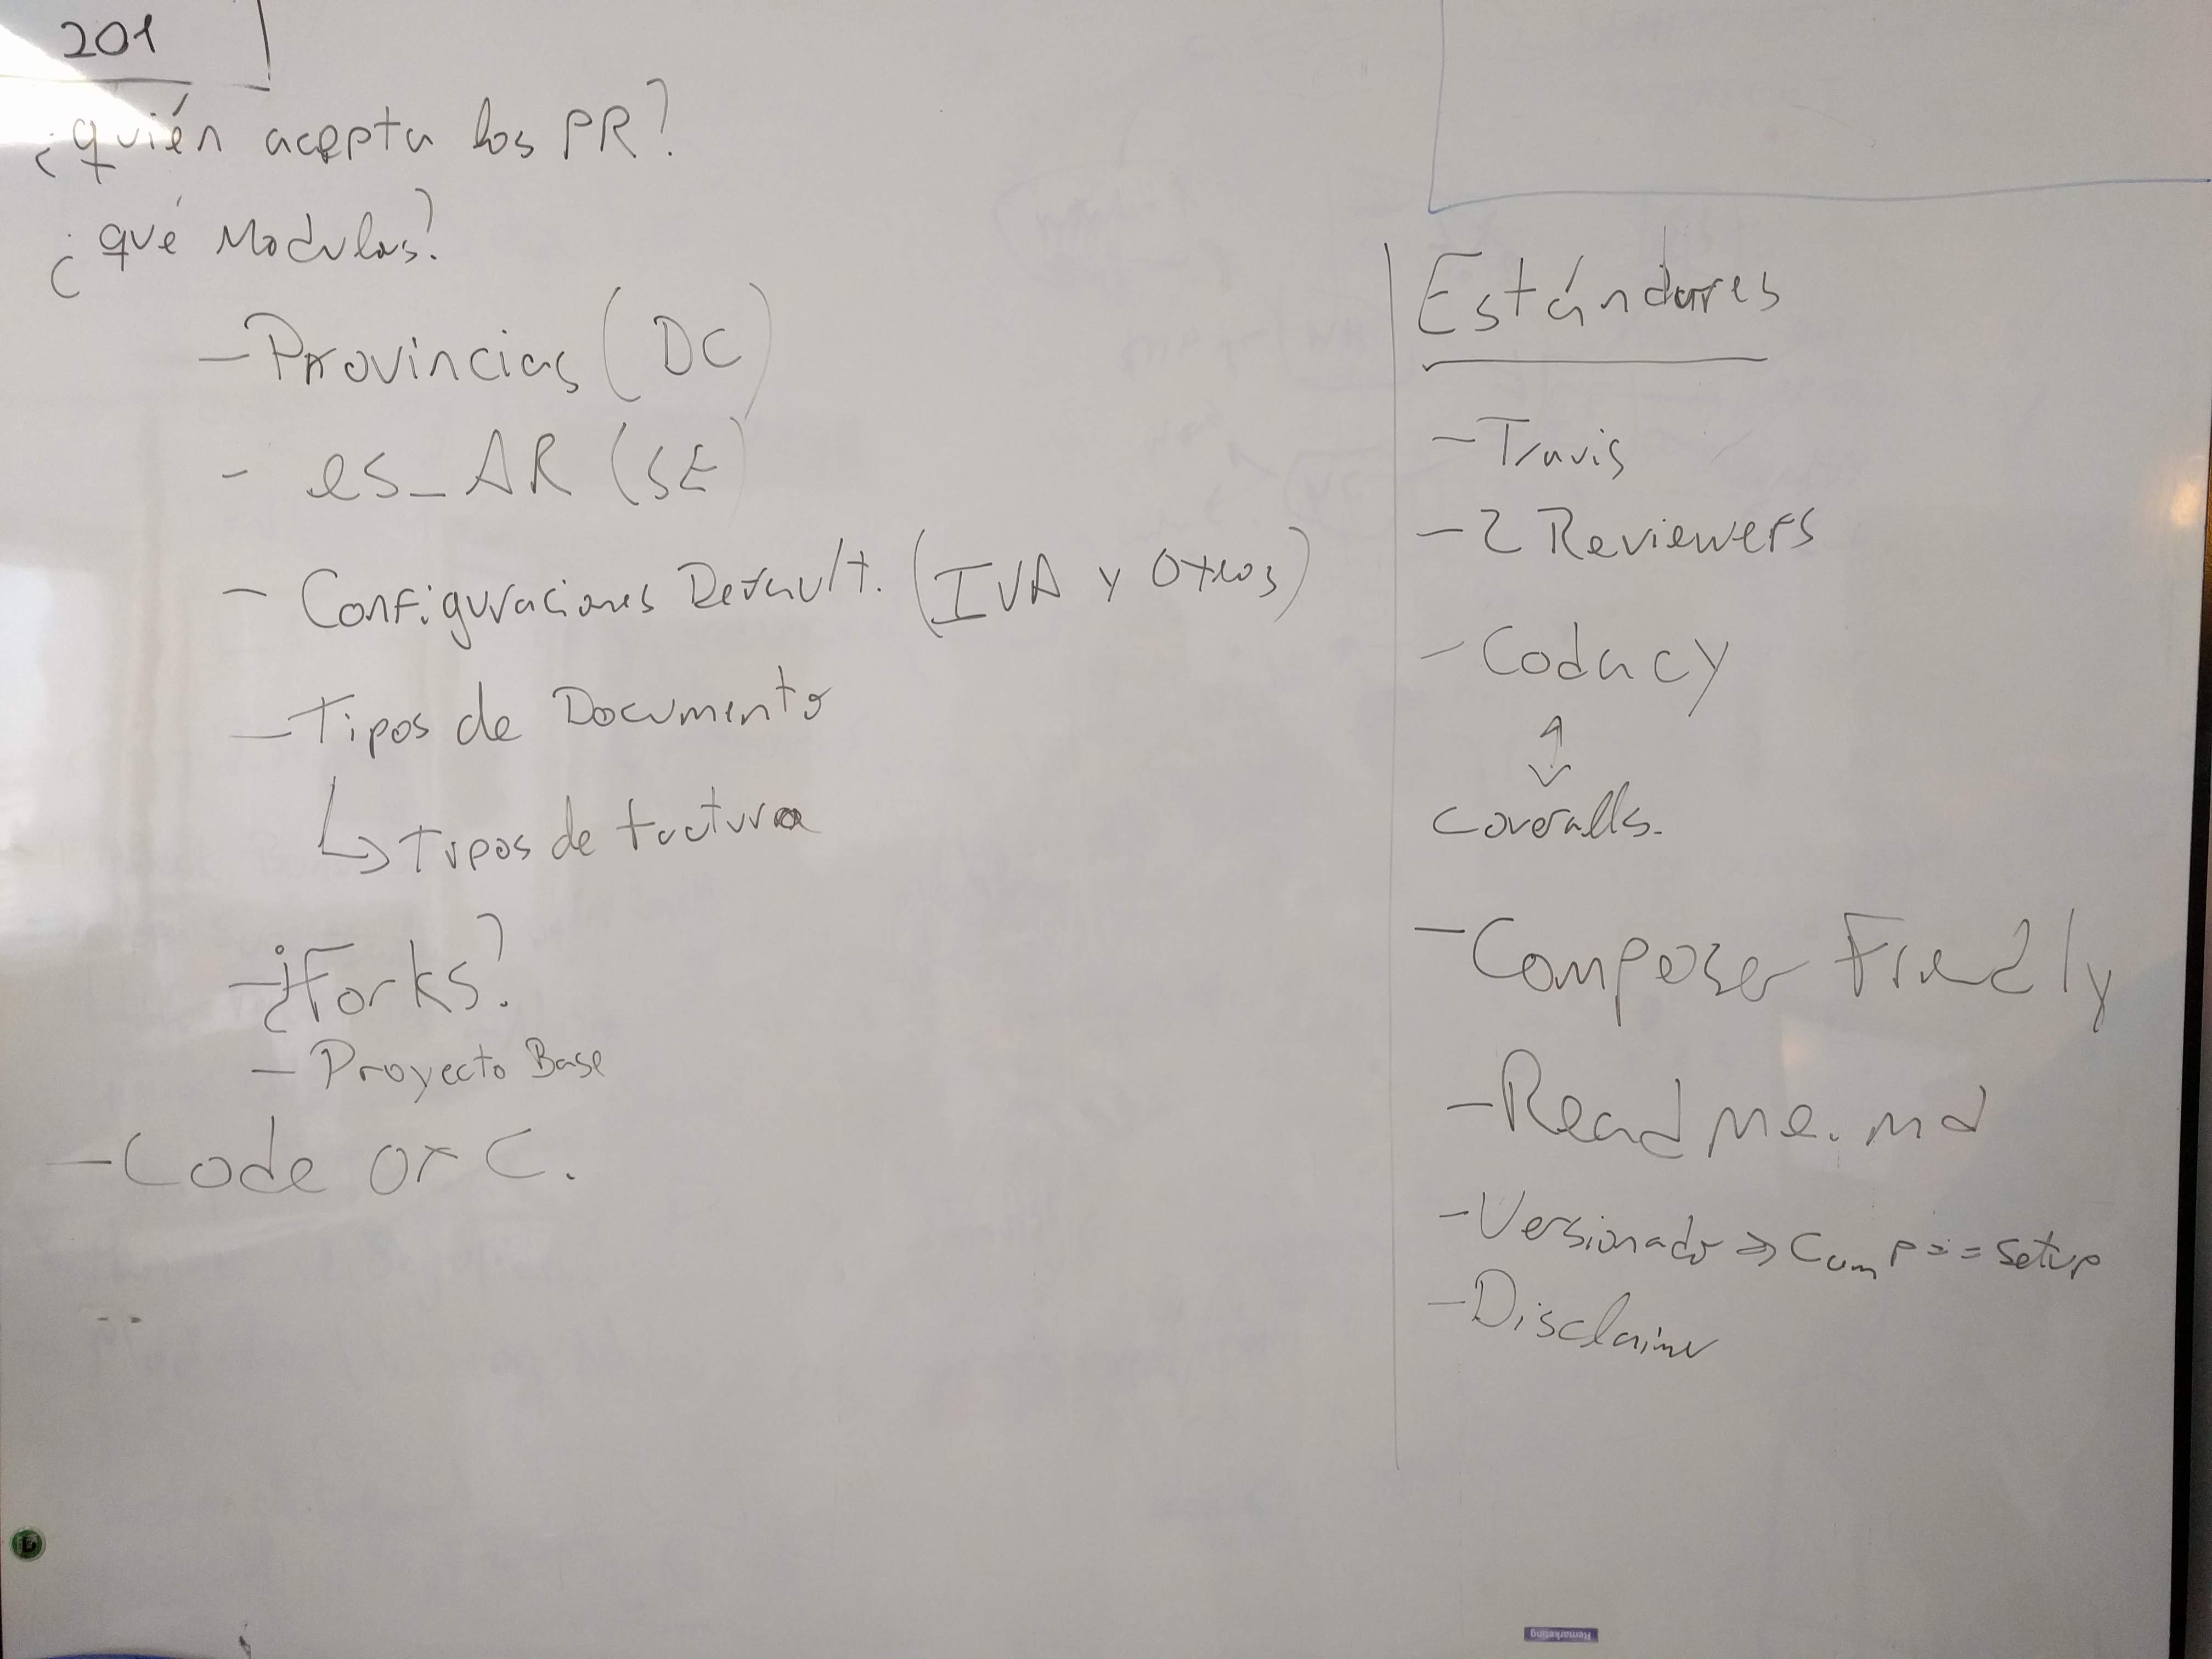 201
¿quién acepta los PR?
¿qué Modulos?
- Provincias (DC)
- es_AR (SE)
- Configuraciones Default. (IVA y Otros)
- Tipos de Documento
↳ Tipos de factura
- ¿Forks?
- Proyecto Base
- Code of C.
Estándares
- Travis
- 2 Reviewers
- Codacy
↕
coveralls.
- Composer Friendly
- Readme.md
- Versionado => Comp == setup
- Disclaimer
Remarketing